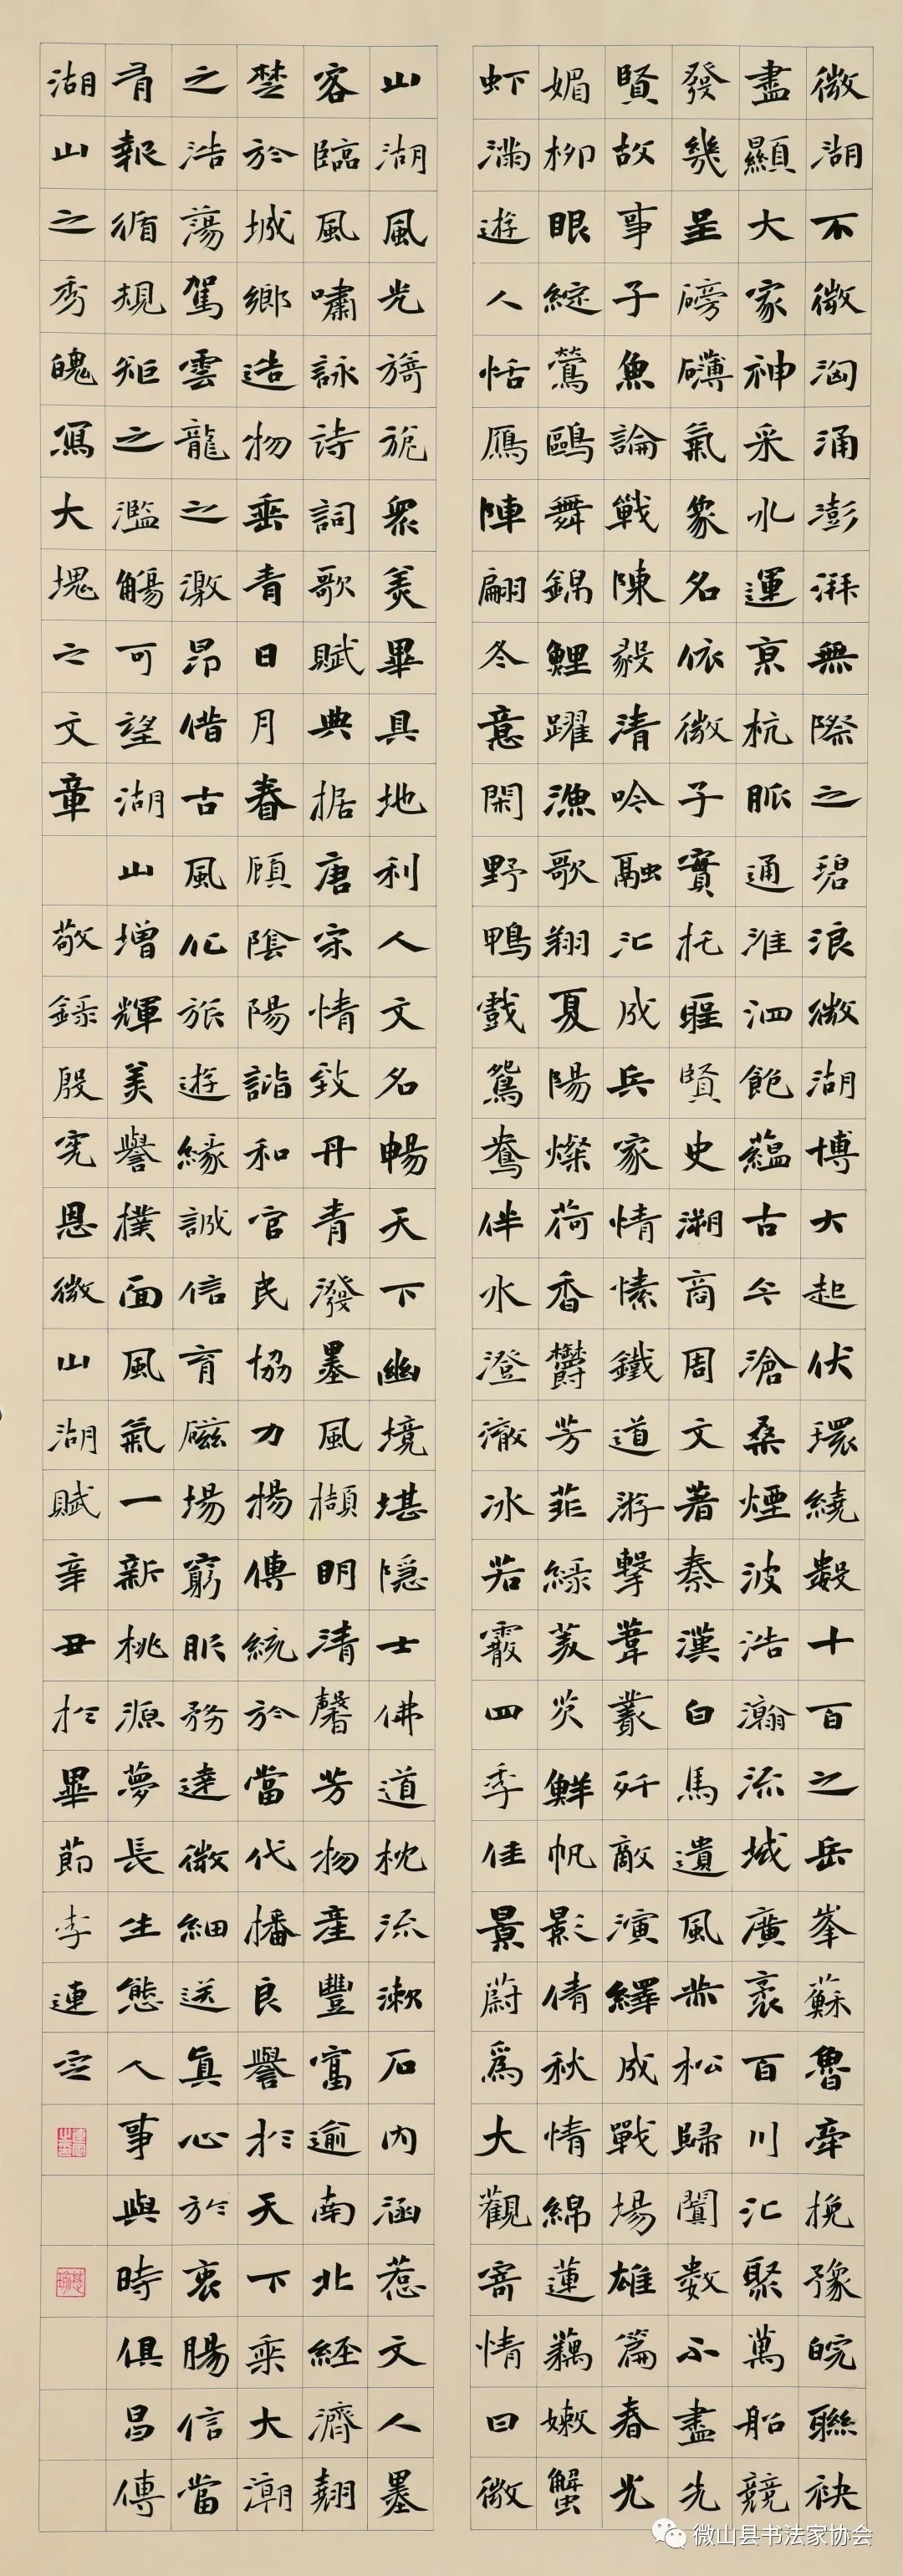 微湖不微洶涌澎湃無際之碧浪微湖博大起伏環繞數十百之岳峯蘇魯牽挽豫皖聯袂
盡顯大家神采水運京杭脈通淮泗飽蘊古今滄桑煙波浩瀚流域廣袤百川汇聚萬船競
發幾呈磅礴氣象名依微子實托聖賢史溯商周文著秦漢白馬遺風赤松歸闐數不盡先
賢故事子魚論戰陳毅清吟融汇成兵家情愫鐵道游擊葦叢歼敵演繹成戰場雄篇春光
媚柳眼綻鶯鷗舞錦鯉躍漁歌翔夏陽燦荷香欝芳菲綠芰炎鮮帆影倩秋情綿蓮藕嫩蟹
虾滿遊人恬鴈陣翩冬意閑野鴨戲鴛鴦伴水澄澈冰若霰四季佳景蔚爲大觀寄情曰微
山湖風光旖旎衆美畢具地利人文名暢天下幽境堪隱士佛道枕流漱石內涵惹文人墨
客臨風嘯詠詩詞歌賦典据唐宋情致丹青潑墨風擷明清馨芳物產豐富逾南北經濟翹
楚於城鄉造物垂青日月眷顧陰陽諧和官民協力揚傳統於當代播良譽於天下乘大潮
之浩蕩駕雲龍之激昂借古風化旅遊緣誠信育磁場窮眂務達微細送真心於衷腸信當
有報循規矩之濫觴可望湖山增輝美譽撲面風氣一新桃源夢長生態人事與時俱昌傳
湖山之秀魄寫大塊之文章
敬錄殷宪恩微山湖賦辛丑於畢節李連空
微山县书法家协会